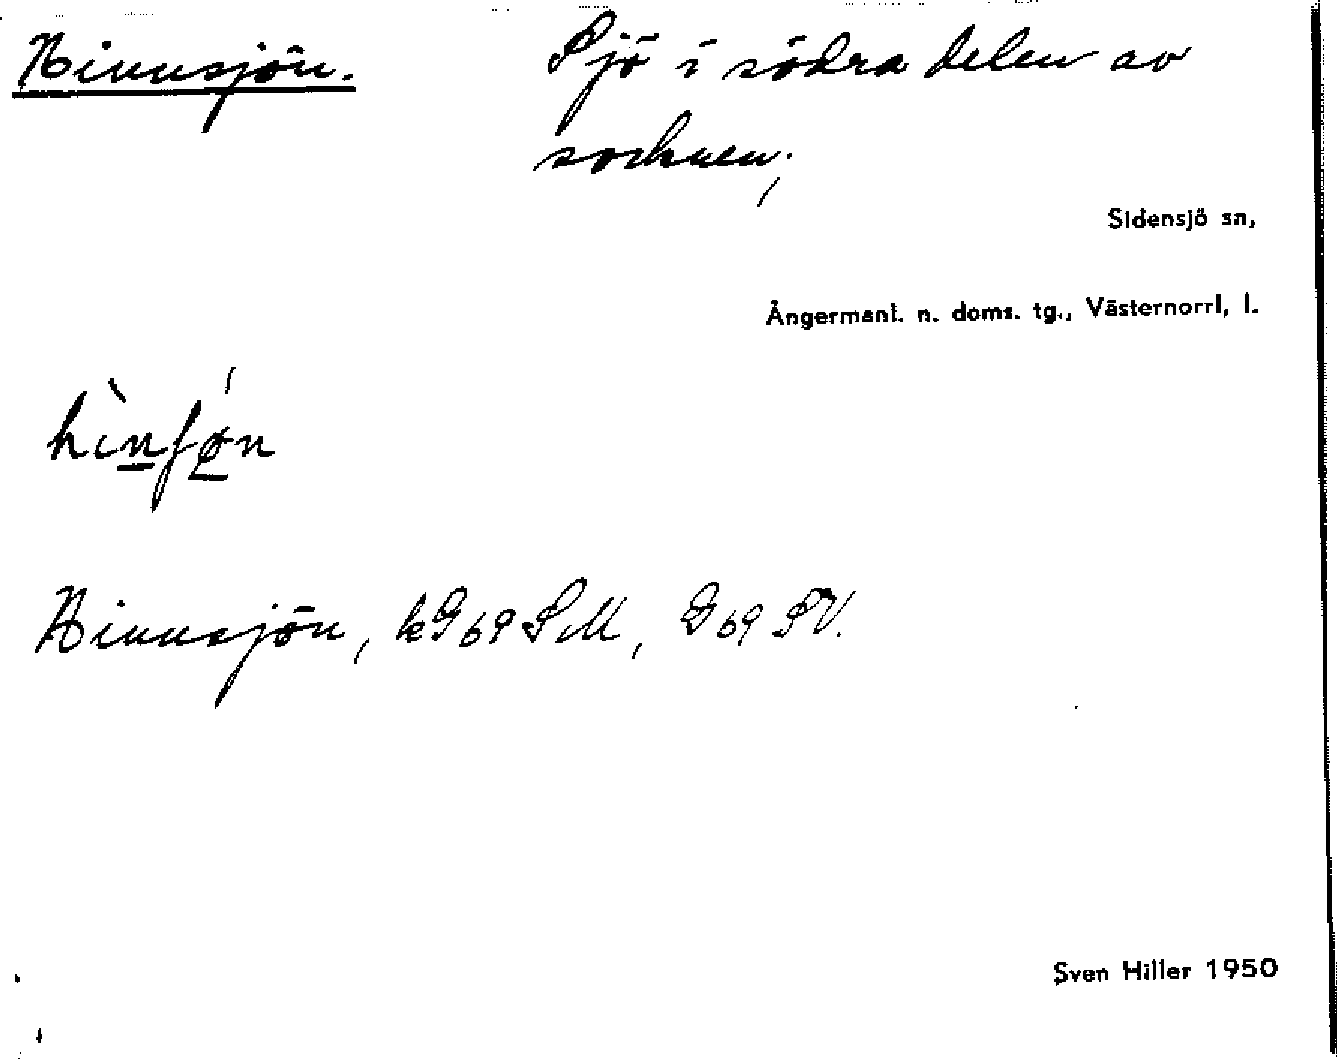 Hinnsjön. Sjö i södra delen av
socknen;
Sidensjö sn,
Ångermanl. n. doms. tg., Västernorrl. l.
hìnʃǿn
Hinnsjön, kG 69 SM, G 69 SV.
Sven Hiller 1950